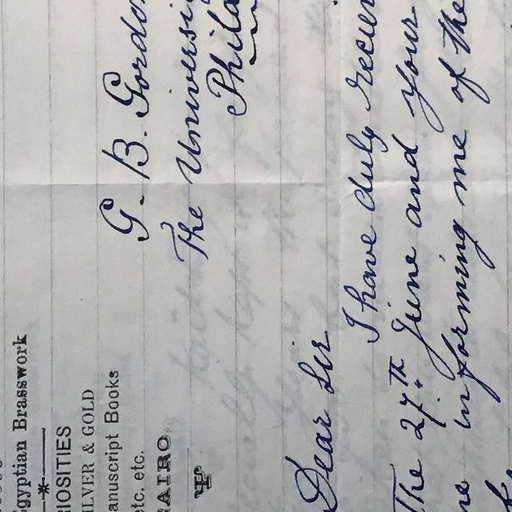 Egyptian Brasswork
RIOSITIES
ILVER & GOLD
anuscript Books
etc. etc.
CAIRO
G. B. Gordo
The Universi
Phila
Dear Sir
I have duly reciev
The 27th June and your
me informing me of the